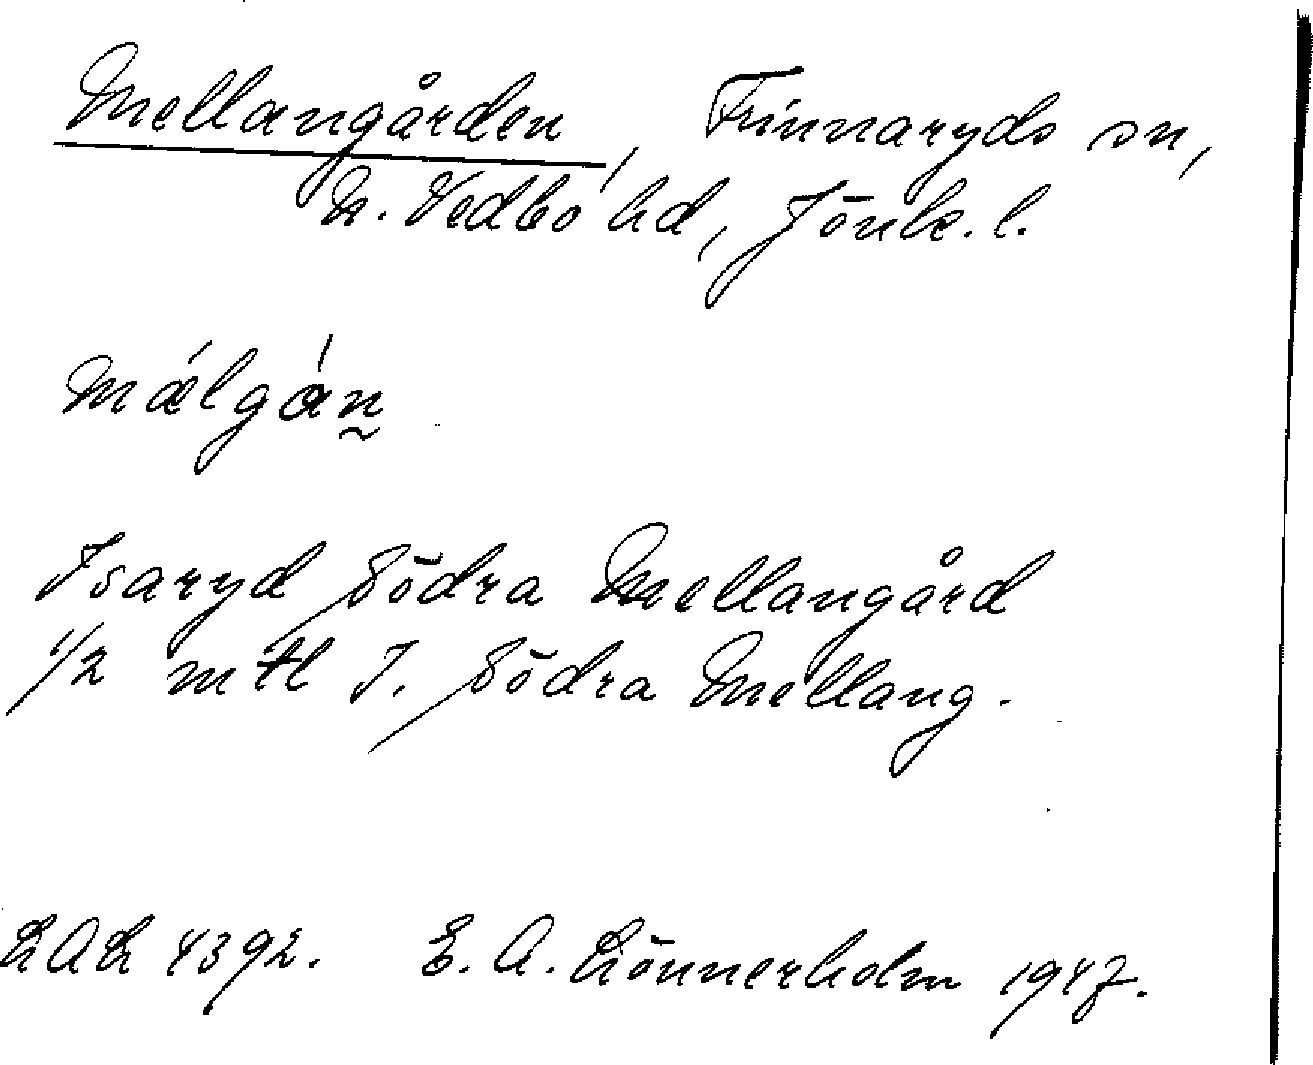 Mellangården, Frinnaryds sn,
N. Vedbo hd, Jönk. l.
mǽlgán̰
Isaryd Södra Mellangård
1/2 mtl I. Södra Mellang.
LAL 4392. E. A. Lönnerholm 1947.